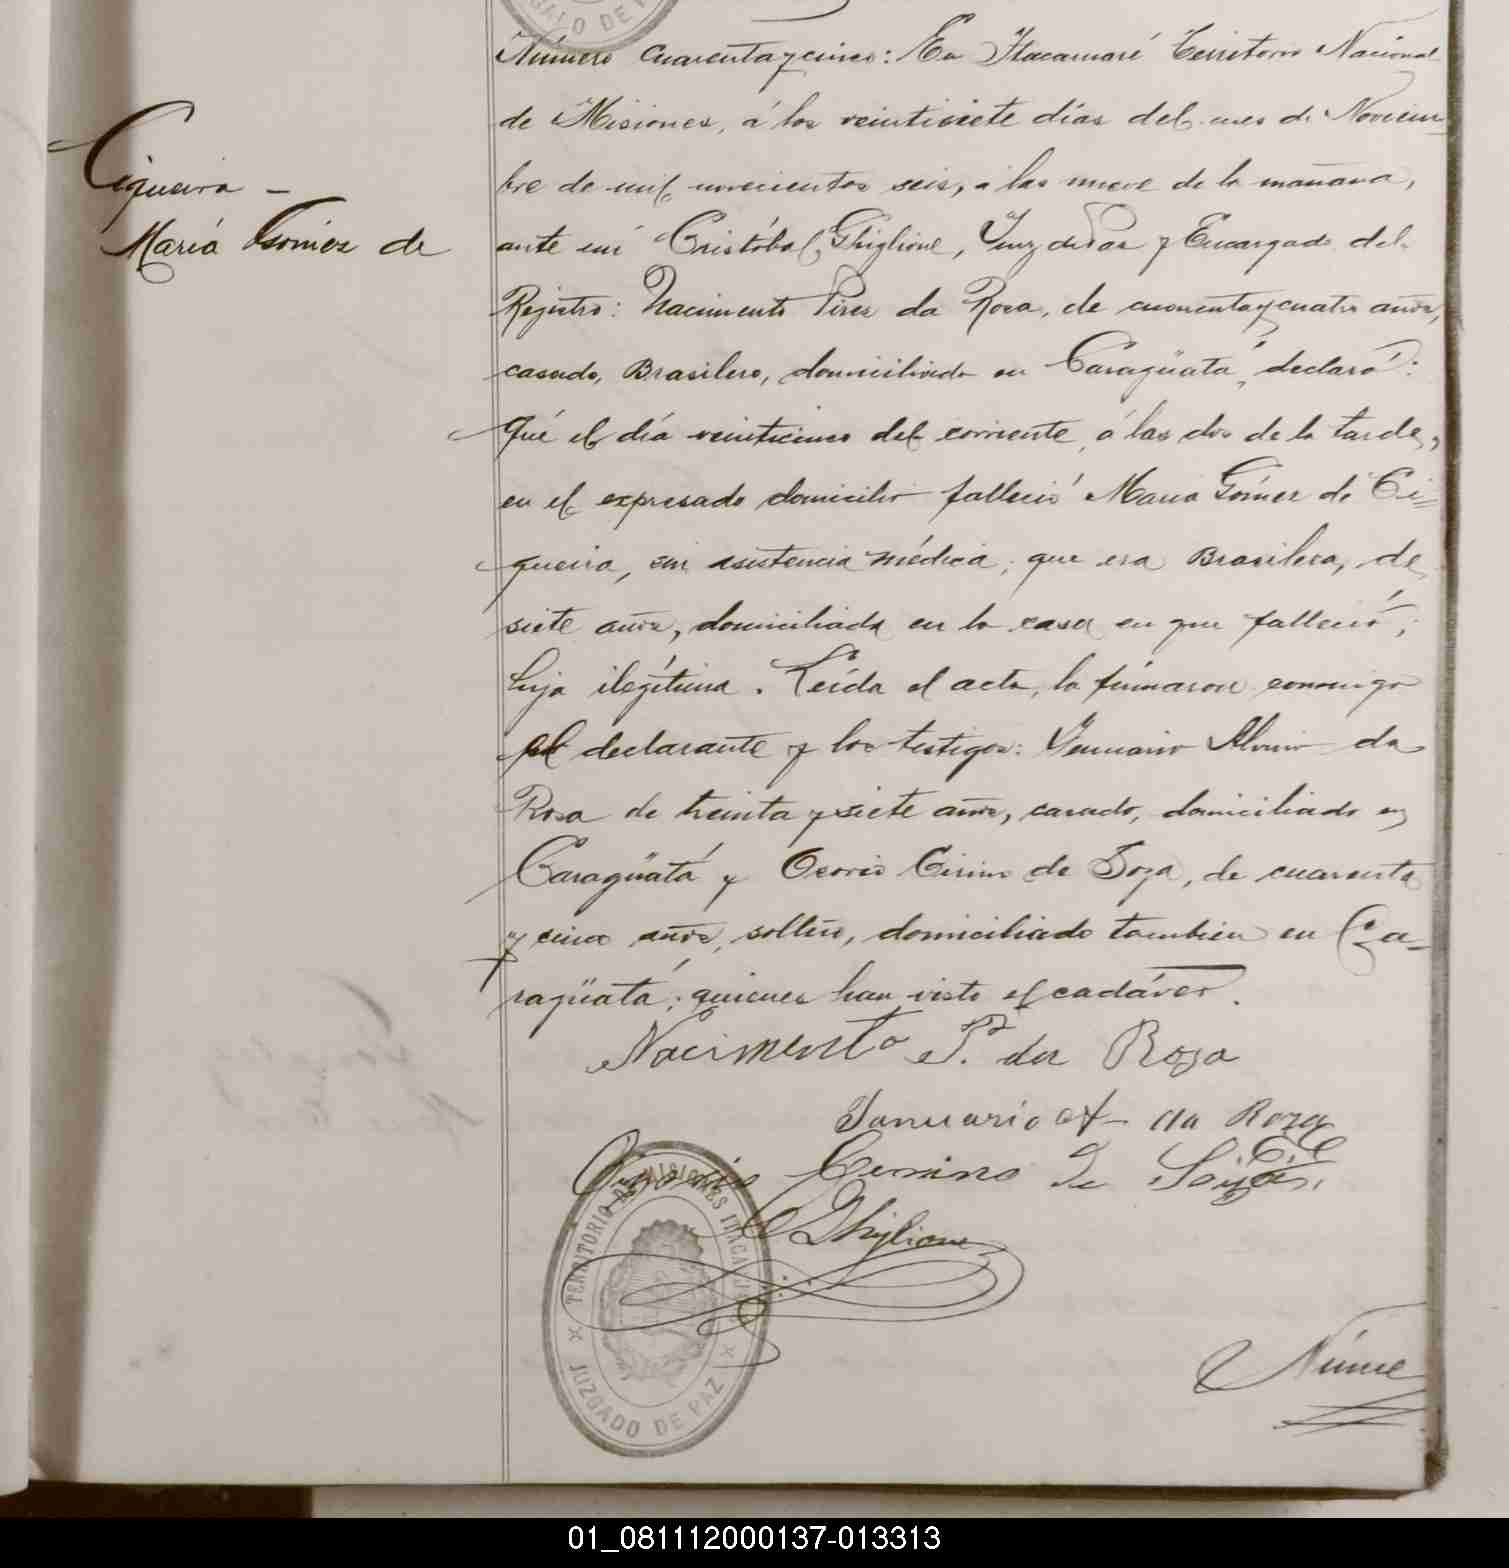 Número cuarenta y cinco: En Itacaruaré Territorio Nacional
de Misiones, á los veintisiete días del mes de Noviem-
bre de mil novecientos seis, a las nueve de la mañana,
Cigueira -
María Gomez de
ante mí Cristóbal Ghiglione, Juez de Paz y Encargado del
Registro: Nacimento Pires da Rosa, de cuarenta y cuatro años,
casado, Brasilero, domiciliado en Caragüatá, declaró:
Qué el día veinticinco del corriente, á las dos de la tarde,
en el expresado domicilio falleció María Gómez de Ci-
gueira, sin asistencia médica; que era Brasilera, de
siete años, domiciliada en la casa en que falleció;
hija ilegítima. Leída el acta, la firmaron conmigo
el declarante y los testigos: Januario da
Rosa de treinta y siete años, casado, domiciliado en
Caragüatá y Osorio Cirino de Soza, de cuarenta
y cinco años, soltero, domiciliado tambien en Ca-
ragüatá; quienes han visto el cadáver.
Nacimento P. da Roza
Januario A da Roza
Cerino de Soiza
C Ghiglione
TERRITORIO DE MISIONES
JUZGADO DE PAZ
Núme
01_081112000137-013313